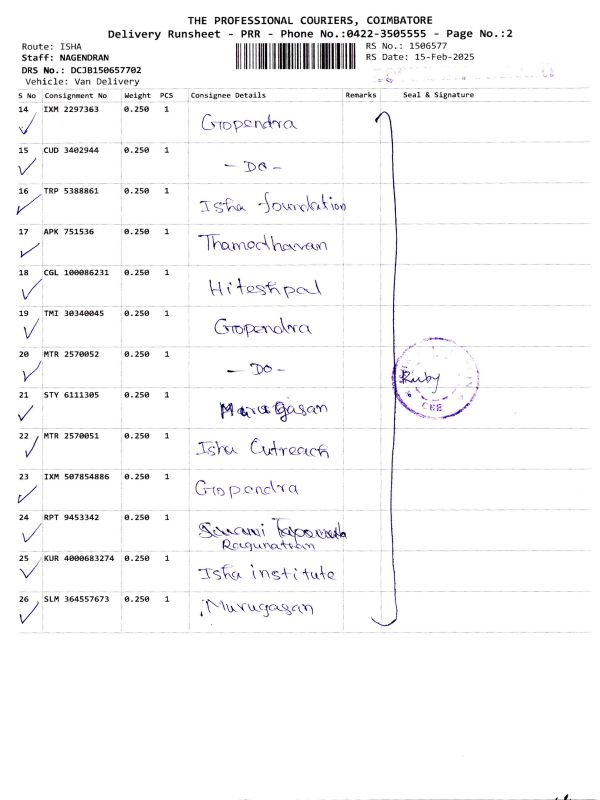 THE PROFESSIONAL COURIERS, COIMBATORE
Delivery Runsheet - PRR - Phone No.:0422-3505555 - Page No.:2
Route: ISHA
RS No.: 1506577
Staff: NAGENDRAN
RS Date: 15-Feb-2025
DRS No.: DCJB150657702
Vehicle: Van Delivery
S No Consignment No Weight PCS Consignee Details Remarks Seal & Signature
14 IXM 2297363 0.250 1 Gopendra
15 CUD 3402944 0.250 1 - Do -
16 TRP 5388861 0.250 1 Isha foundation
17 APK 751536 0.250 1 Thamodharan
18 CGL 100086231 0.250 1 Hiteshpal
19 TMI 30340045 0.250 1 Gopendra
20 MTR 2570052 0.250 1 - Do -
Ruby
21 STY 6111305 0.250 1 Murugasan
22 MTR 2570051 0.250 1 Isha Outreach
23 IXM 507854886 0.250 1 Gopendra
24 RPT 9453342 0.250 1 Swami
Ragunathan
25 KUR 4000683274 0.250 1 Isha institute
26 SLM 364557673 0.250 1 Murugasan